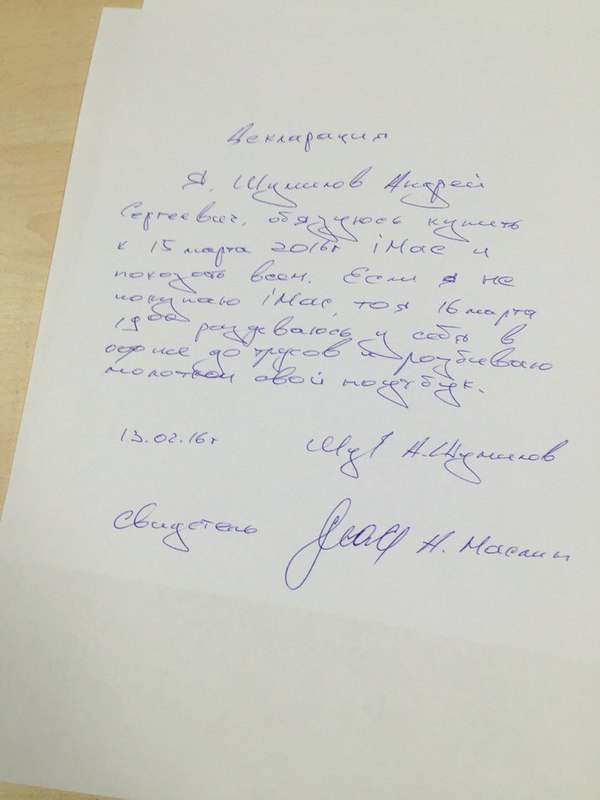 Декларация
Я, Шумилов Андрей
Сергеевич, обязуюсь купить
к 15 марта 2016г iMac и
показать всем. Если я не
покупаю iMac, то я 16 марта
19⁰⁰ раздеваюсь у себя в
офисе до трусов и разбиваю
молотком свой ноутбук.
13.02.16г А.Шумилов
Свидетель А. Маслин